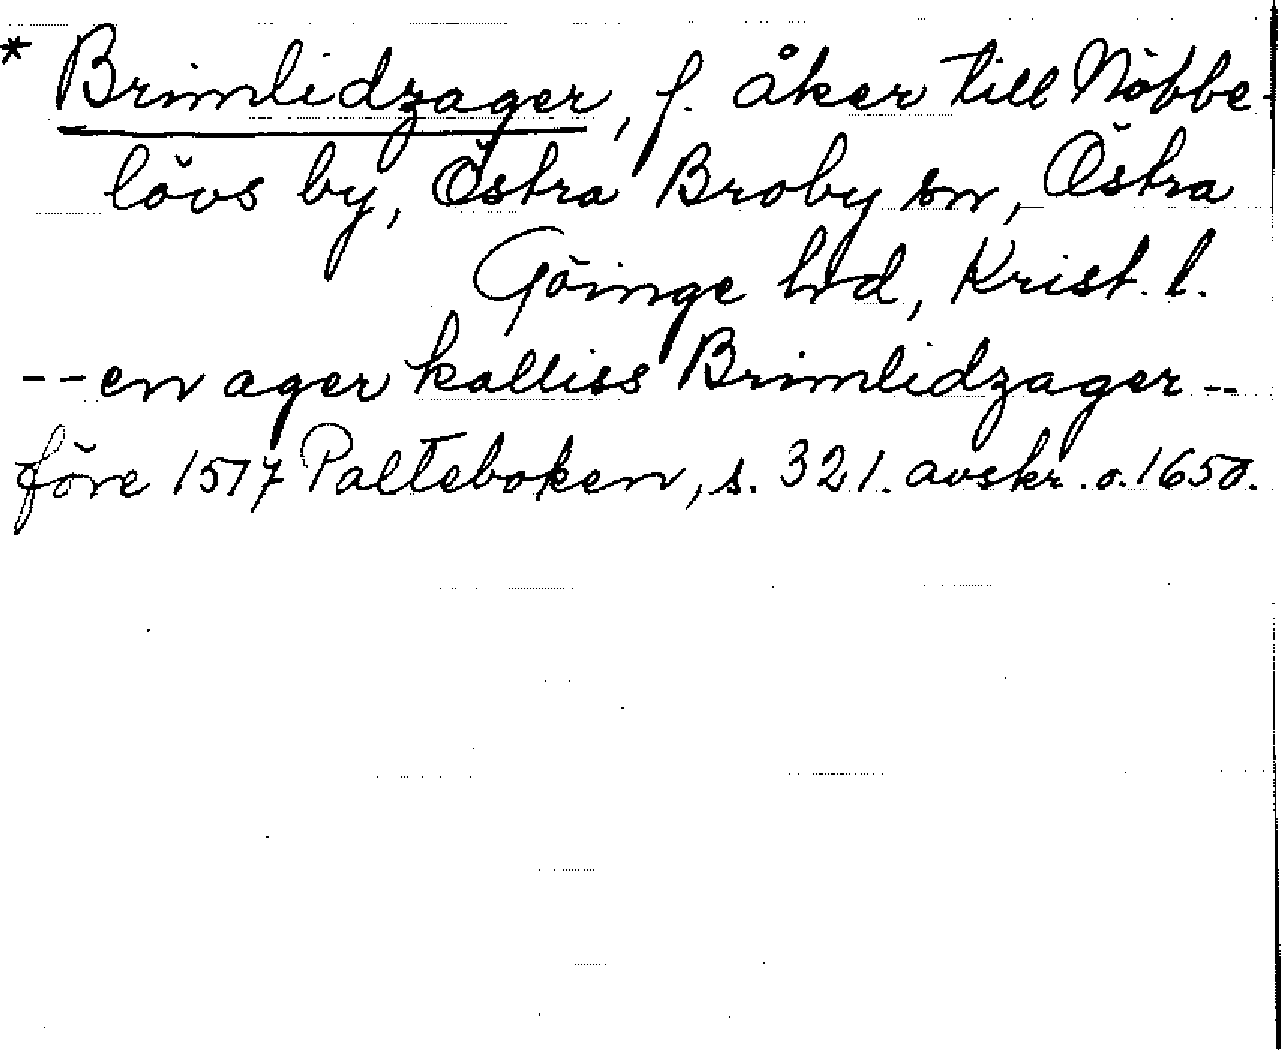 * Brimlidzager, f. åker till Nöbbe-
lövs by, Östra Broby sn, Östra
Göinge hd, Krist. l.
-- en ager kalliss Brimlidzager --
före 1517 Palteboken, s. 321. avskr. o. 1650.